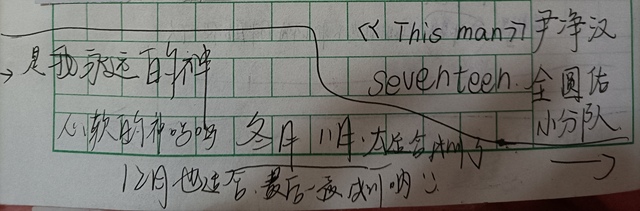 《This man》尹净汉
→ 是我永远的神 seventeen. 全圆佑
心软的神呜呜 冬月 11月. 小分队
12月也适合. 最后一 哟